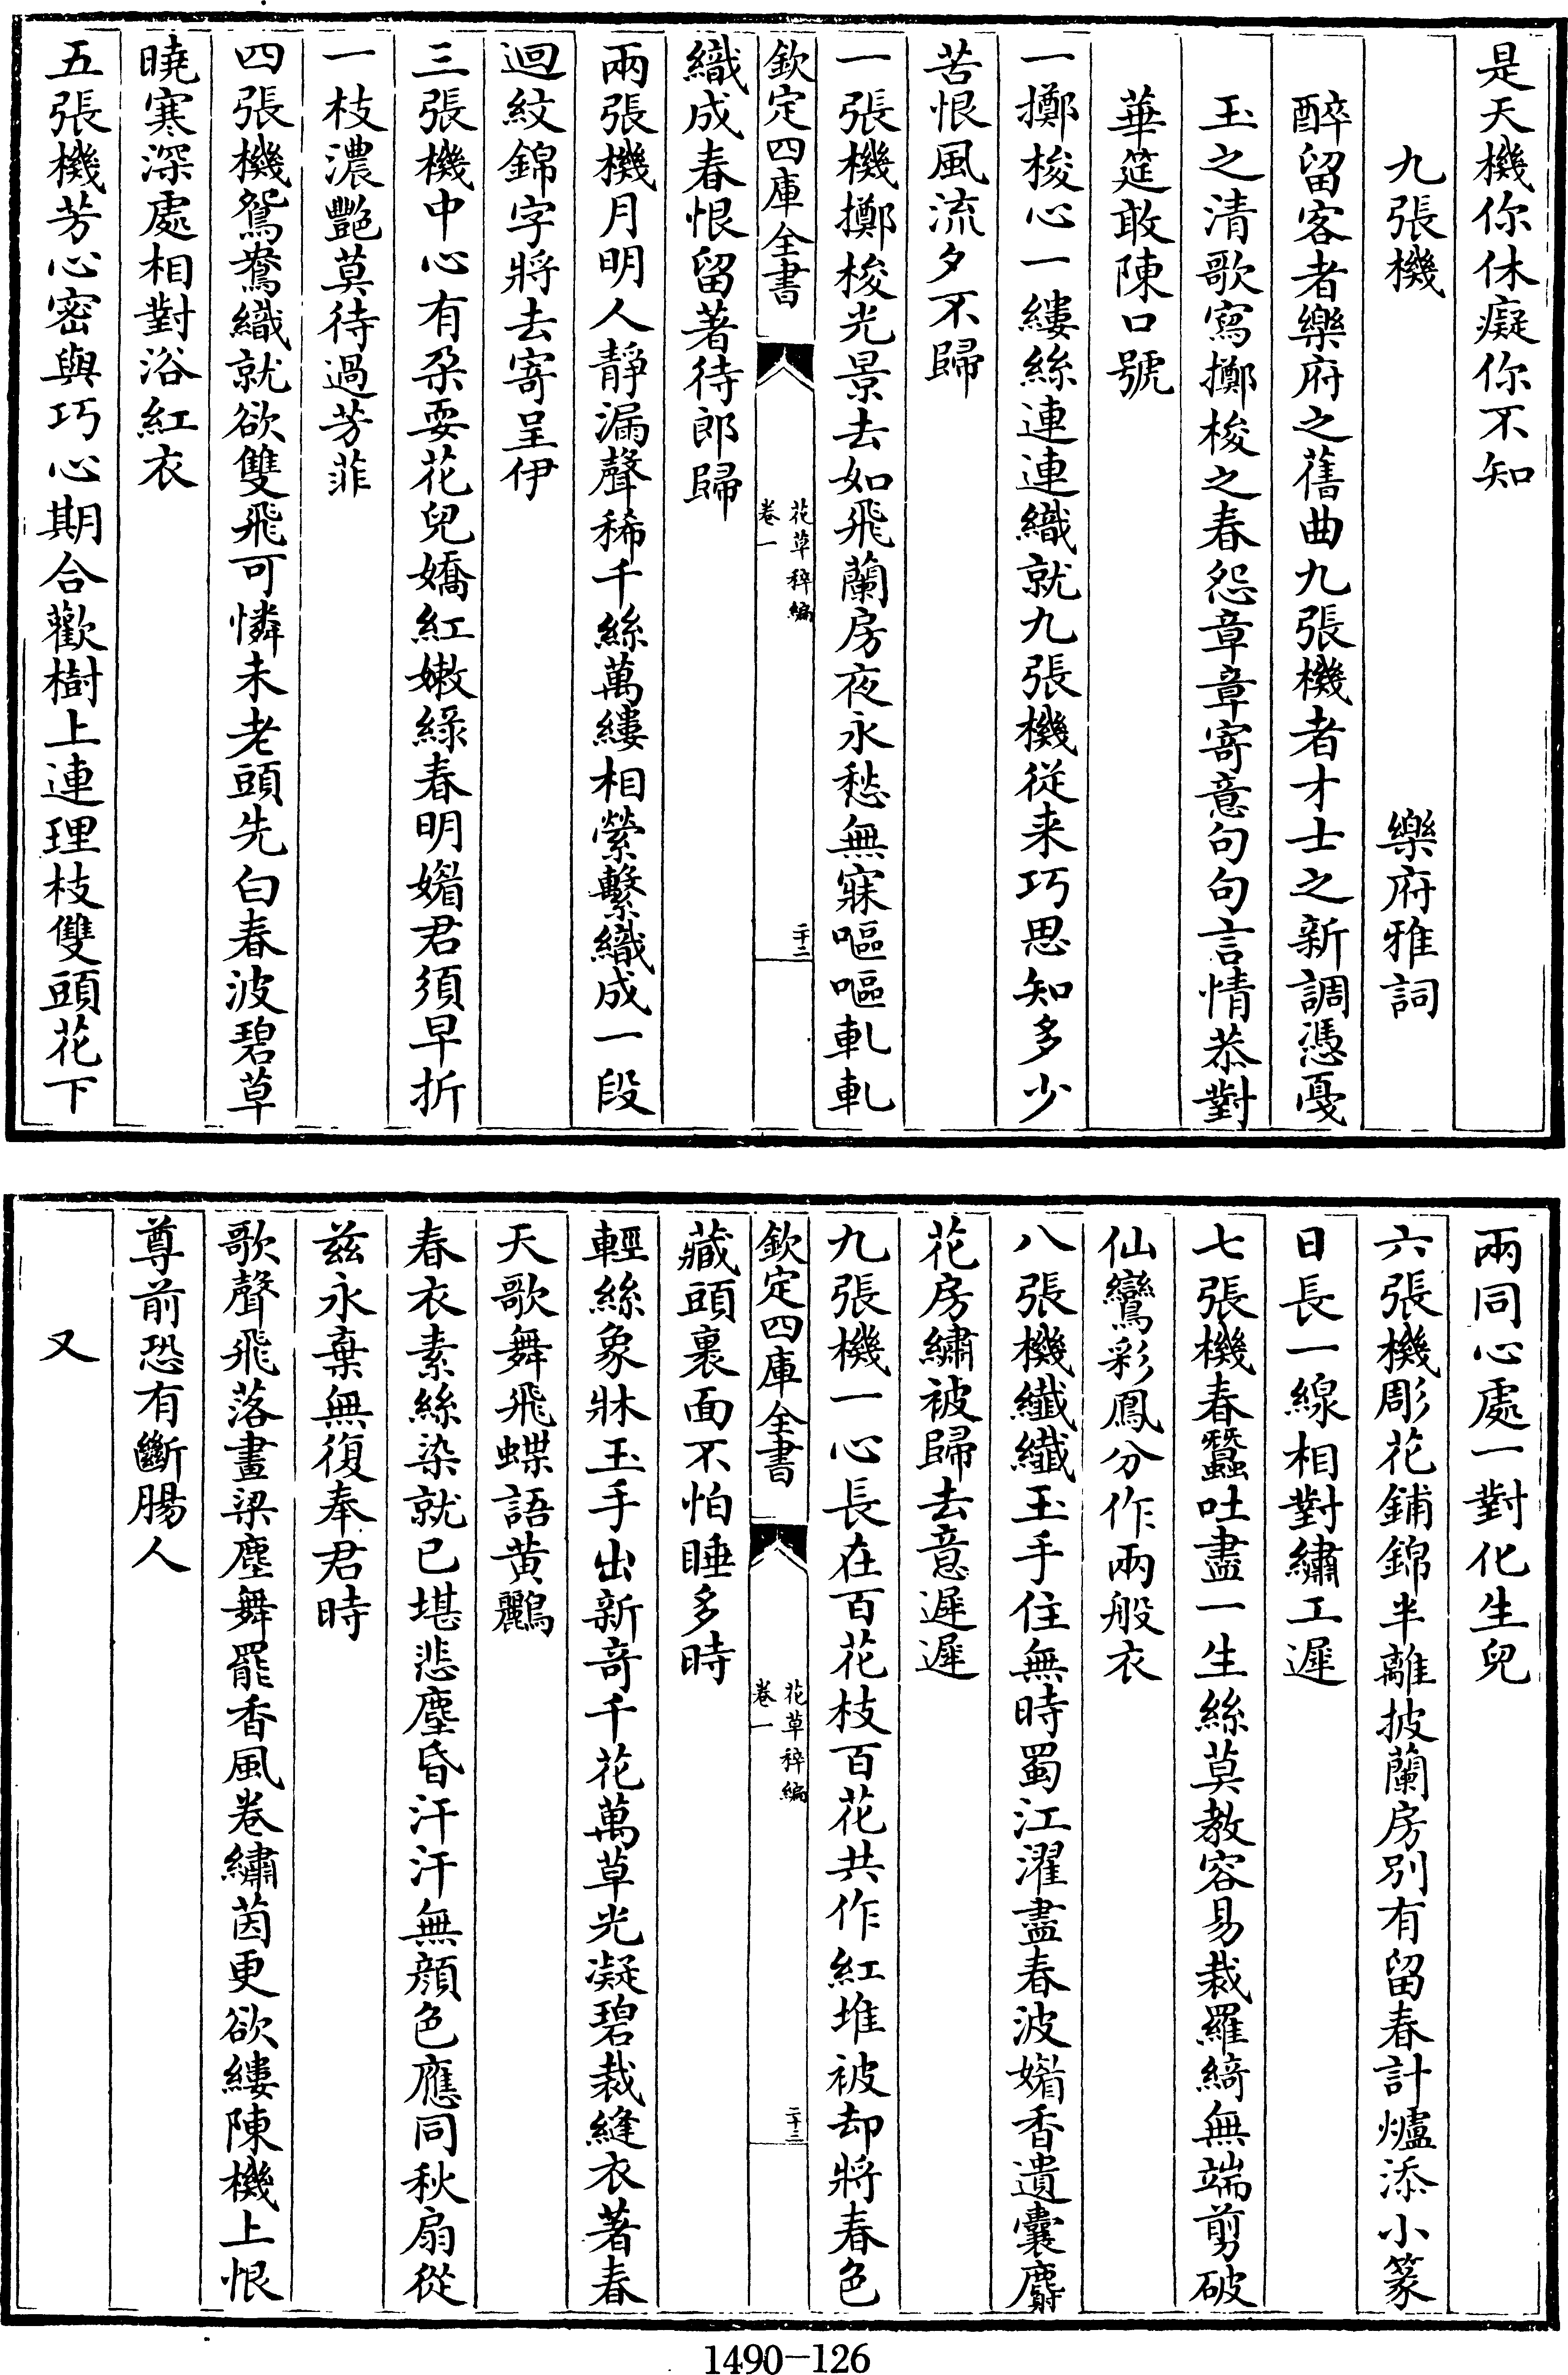 是天機你休癡你不知
九張機　樂府雅詞
醉留客者樂府之舊曲九張機者才士之新調憑戞
玉之清歌寫擲梭之春怨章章寄意句句言情恭對
華筵敢陳口號
一擲梭心一縷絲連連織就九張機從来巧思知多少
苦恨風流夕不歸
一張機擲梭光景去如飛蘭房夜永愁無寐嘔嘔軋軋
欽定四庫全書
花草稡編
卷一
二十二
織成春恨留著待郎歸
兩張機月明人靜漏聲稀千絲萬縷相縈繫織成一段
迴紋錦字將去寄呈伊
三張機中心有朶耍花兒嬌紅嫩綠春明媚君須早折
一枝濃豔莫待過芳菲
四張機鴛鴦織就欲雙飛可憐未老頭先白春波碧草
曉寒深處相對浴紅衣
五張機芳心密與巧心期合歡樹上連理枝雙頭花下
兩同心處一對化生兒
六張機彫花鋪錦半離披蘭房別有留春計爐添小篆
日長一線相對繡工遲
七張機春蠶吐盡一生絲莫教容易裁羅綺無端剪破
仙鸞彩鳳分作兩般衣
八張機纖纖玉手住無時蜀江濯盡春波媚香遺囊麝
花房繡被歸去意遲遲
九張機一心長在百花枝百花共作紅堆被却將春色
欽定四庫全書
花草稡編
卷一
二十三
藏頭裹面不怕睡多時
輕絲象牀玉手出新奇千花萬草光凝碧裁縫衣著春
天歌舞飛蝶語黄鸝
春衣素絲染就已堪悲塵昏汗汗無顔色應同秋扇從
兹永棄無復奉君時
歌聲飛落畫梁塵舞罷香風卷繡茵更欲縷陳機上恨
尊前恐有斷腸人
又
1490-126